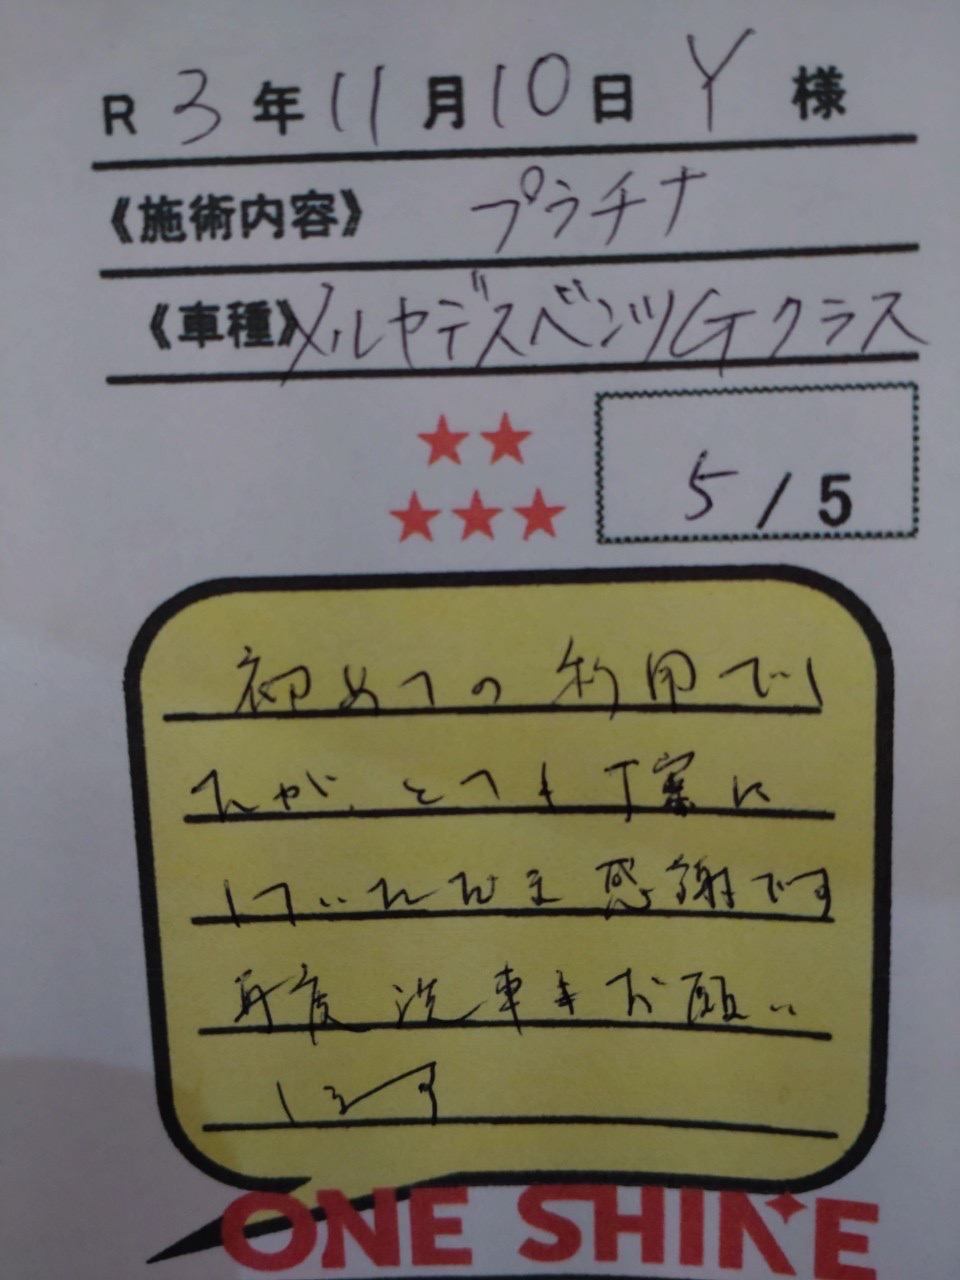 R 3年11月10日 Y 様
《施術内容》 プラチナ
《車種》メルセデスベンツGクラス
5/5
初めての利用でし
たが、とても丁寧に
していただき感謝です
再度洗車をお願い
します
ONE SHINE